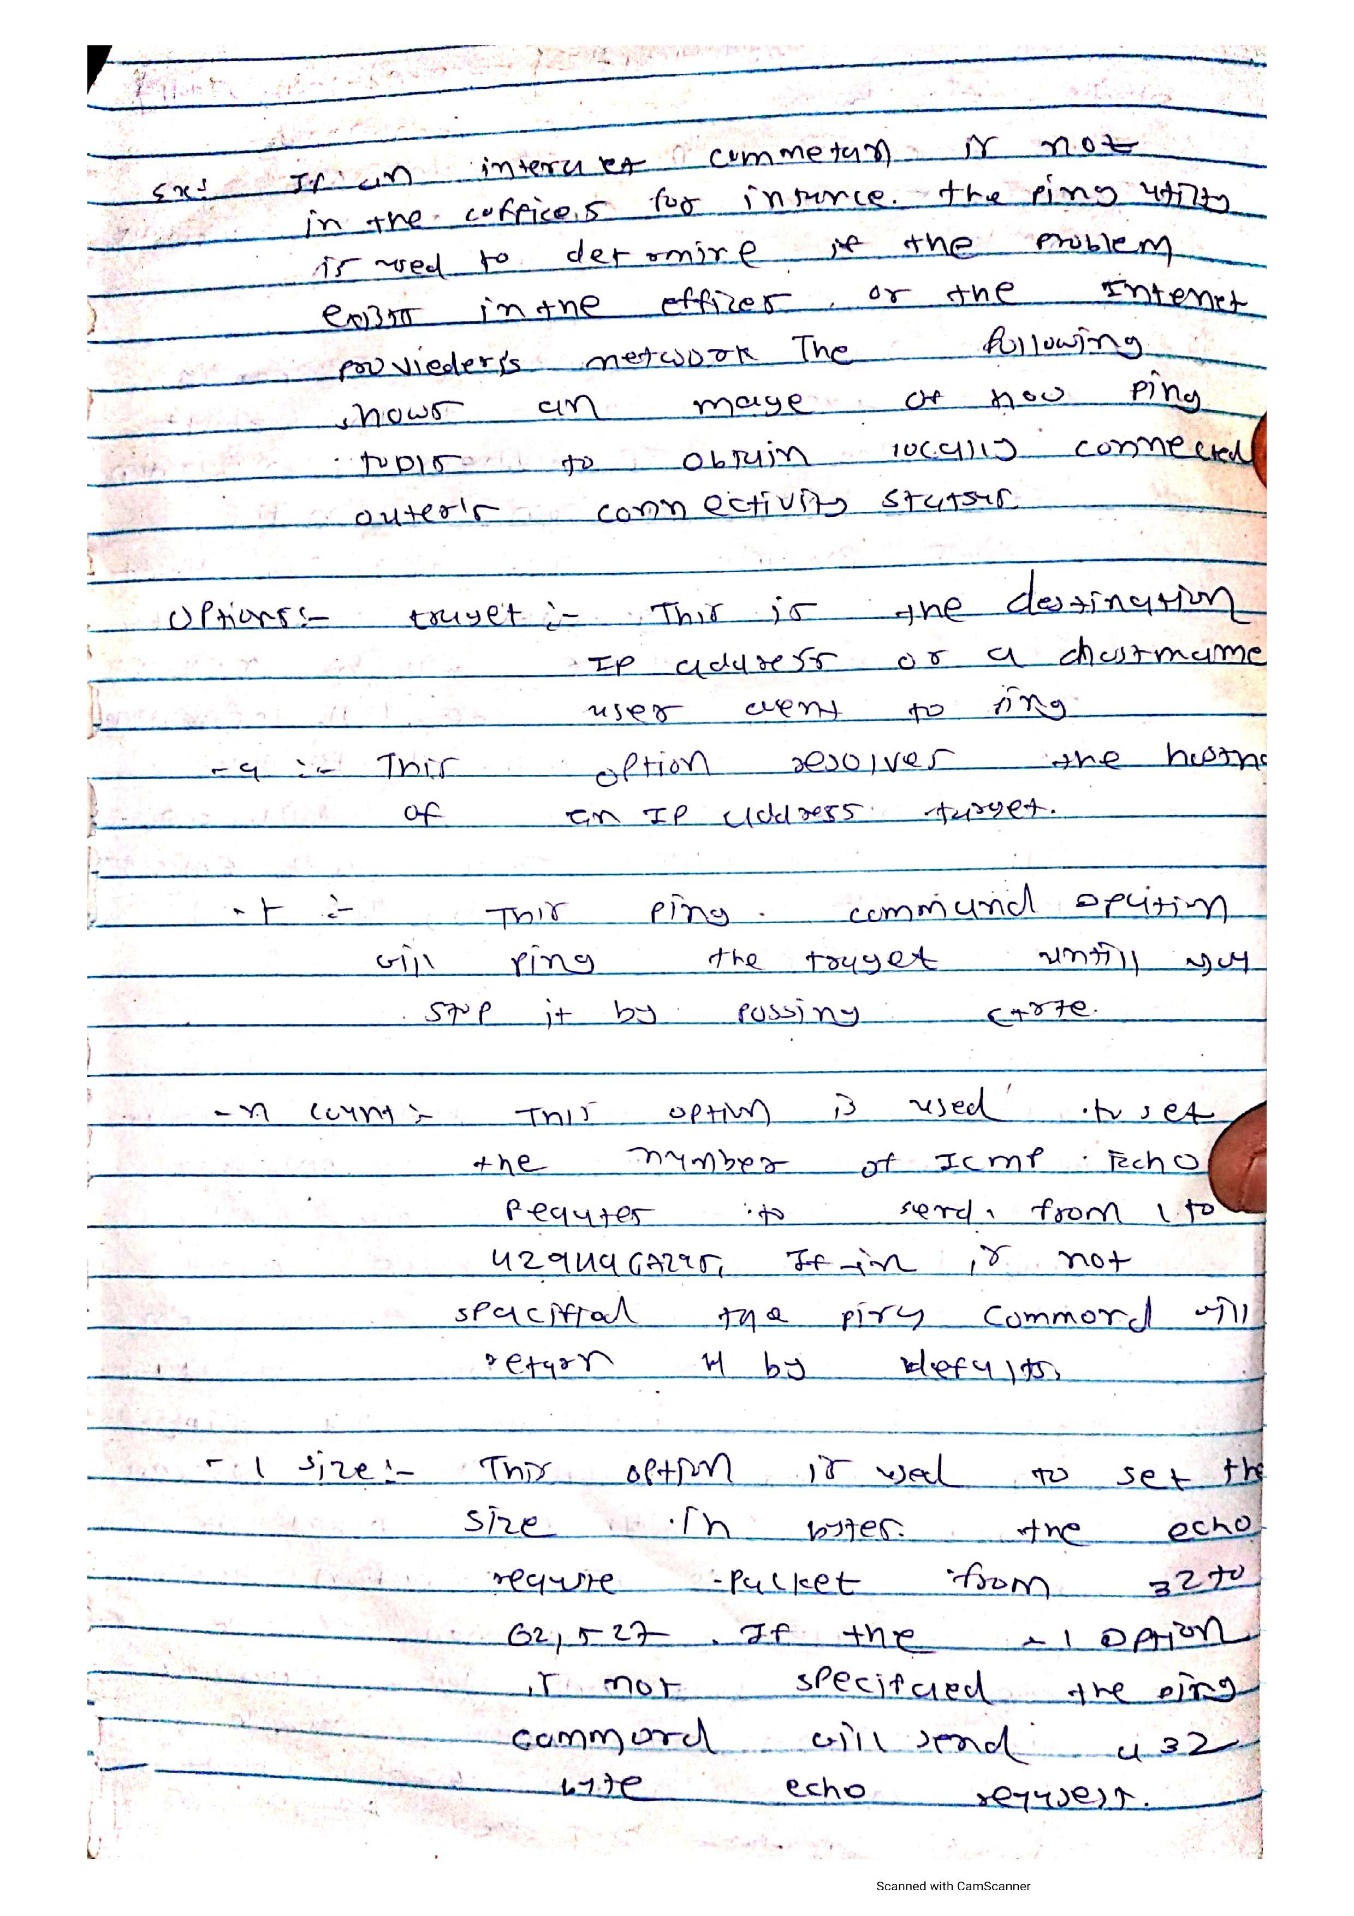 Ex:- If an internet connection is not
in the coffices for insunce. the ping utility
is used to detomire if the problem
in the effices or the Intenet
provieder's network The following
shows an mage of how ping
tools to obtain locally connected
outer's connectivity
Options:- target :- This is the destination
IP address or a
user want to ping
-a :- This option resolves the hostna
of an IP address target.
-t :- This ping command
will ping the target untill you
stop it by
-n count :- This option is used to set
the number of ICMP Echo
to send, from 1 to
If -n is not
the ping commord will
return 4 by defults.
-l size :- This option is used to set the
size in bytes. the echo
packet from 32 to
62,527. If the -l option
is not the ping
commord will send a 32
byte echo request.
Scanned with CamScanner